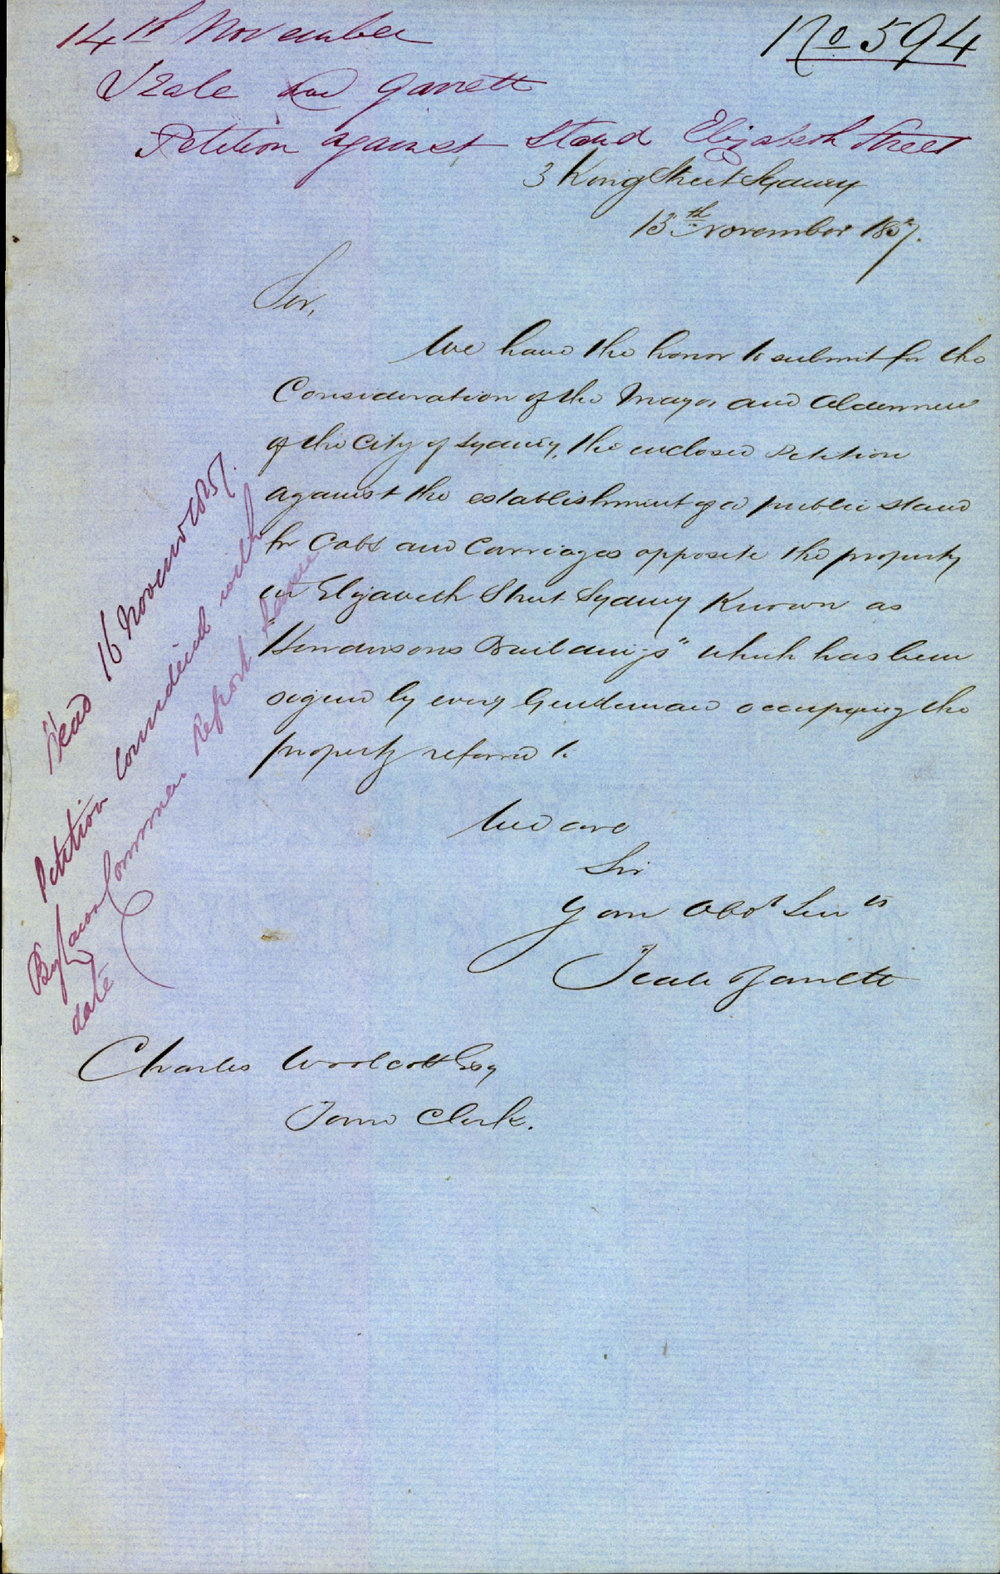 14th November
No 594
Teale and Garrett
Petition against Stand Elizabeth Street
3 King Street Sydney
13th November 1857.
Sir,
We have the honor to submit for the
Consideration of the Mayor and Aldermen
of the City of Sydney, the enclosed Petition
against the establishment of a public stand
for Cabs and Carriages opposite the property
in Elizabeth Street Sydney Known as
"Hendersons Buildings" which has been
signed by every Gentleman occupying the
property referred to
We are
Sir
Your Obdt Servts
Teale Garrett
Charles Woolcott Esq
Town Clerk.
Read 16 November 1857.
Petition considered with
Committee Report same
date